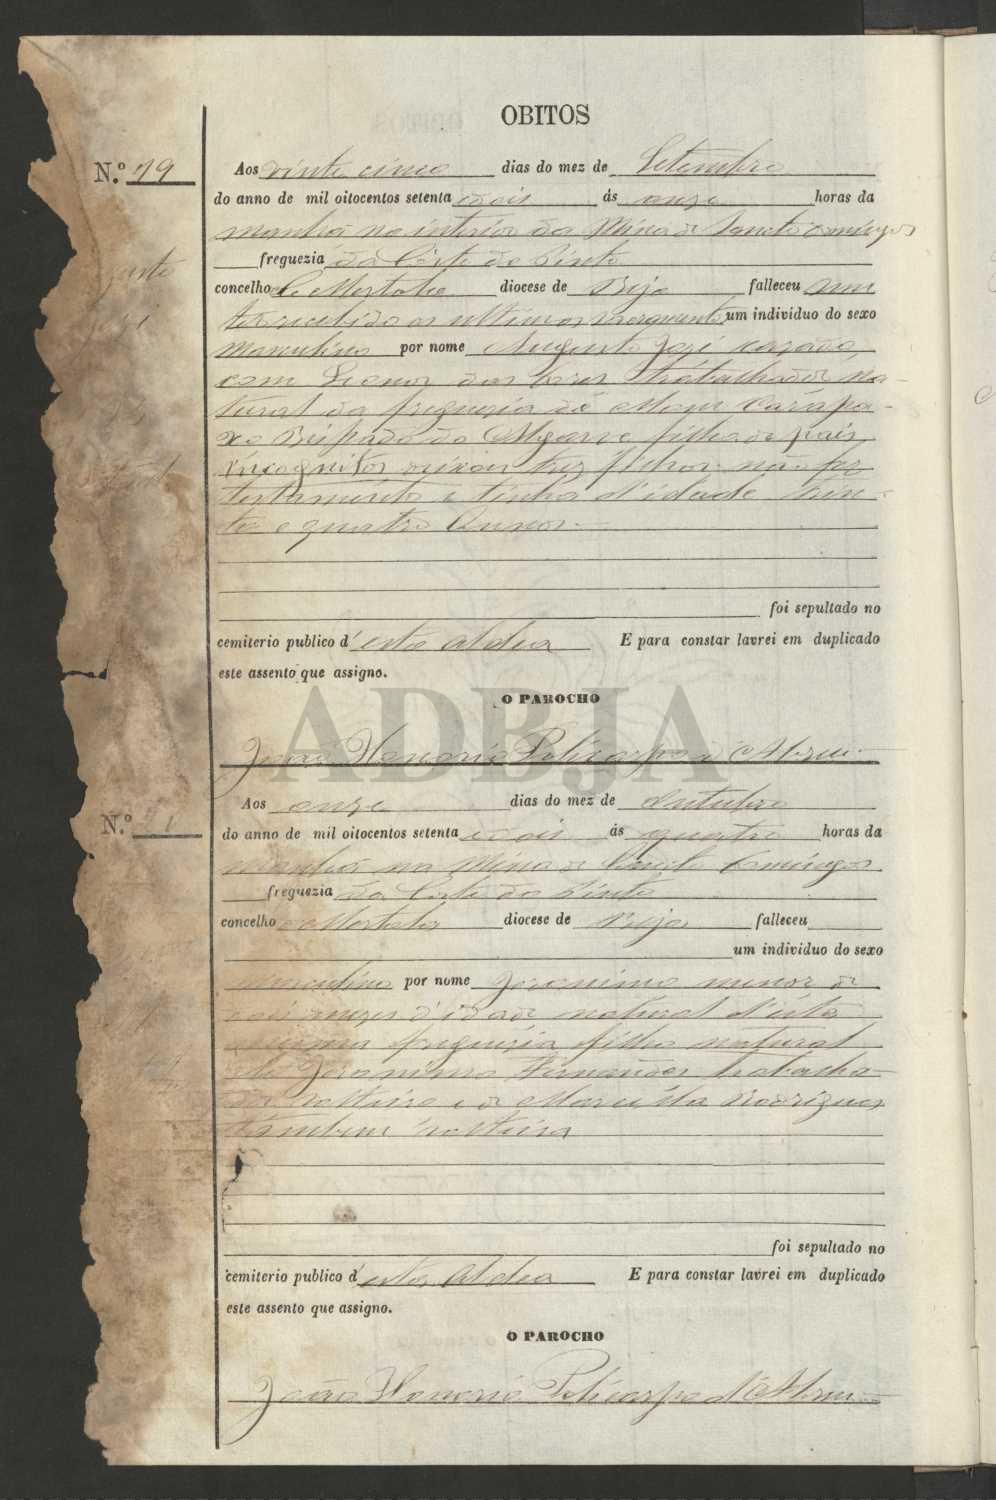 OBITOS
N.º 79
Aos vinte cinco dias do mez de Setembro
do anno de mil oitocentos setenta e dois ás onze horas da
manhã no interior da Mina de Sancto Domingos
freguezia da Corte do Pinto
concelho de Mertola diocese de Beja falleceu sem
ter recebido os ultimos um individuo do sexo
masculino por nome Augusto José casado
com Leonor das trabalhador na-
tural da freguezia de Mon carapa-
xo Bispado do Algarve filho de pais
incognitos deixou trez filhos não fez
testamento e tinha d'idade trin-
ta e quatro annos.
foi sepultado no
cemiterio publico d'esta aldea E para constar lavrei em duplicado
este assento que assigno.
O PAROCHO
ADBJA
João Honorio Policarpo d'Abreu
N.º
Aos onze dias do mez de Outubro
do anno de mil oitocentos setenta e dois ás quatro horas da
manhã na Mina de Sancto Domingos
freguezia da Corte do Pinto
concelho de Mertola diocese de Beja falleceu
um individuo do sexo
masculino por nome Jeronimo menor de
dois mezes d'idade natural d'esta
mesma freguezia filho natural
de Jeronimo Fernandes trabalha-
dor solteiro e de Rodrigues
tambem solteira
foi sepultado no
cemiterio publico d'esta Aldea E para constar lavrei em duplicado
este assento que assigno.
O PAROCHO
João Honorio Policarpo d'Abreu